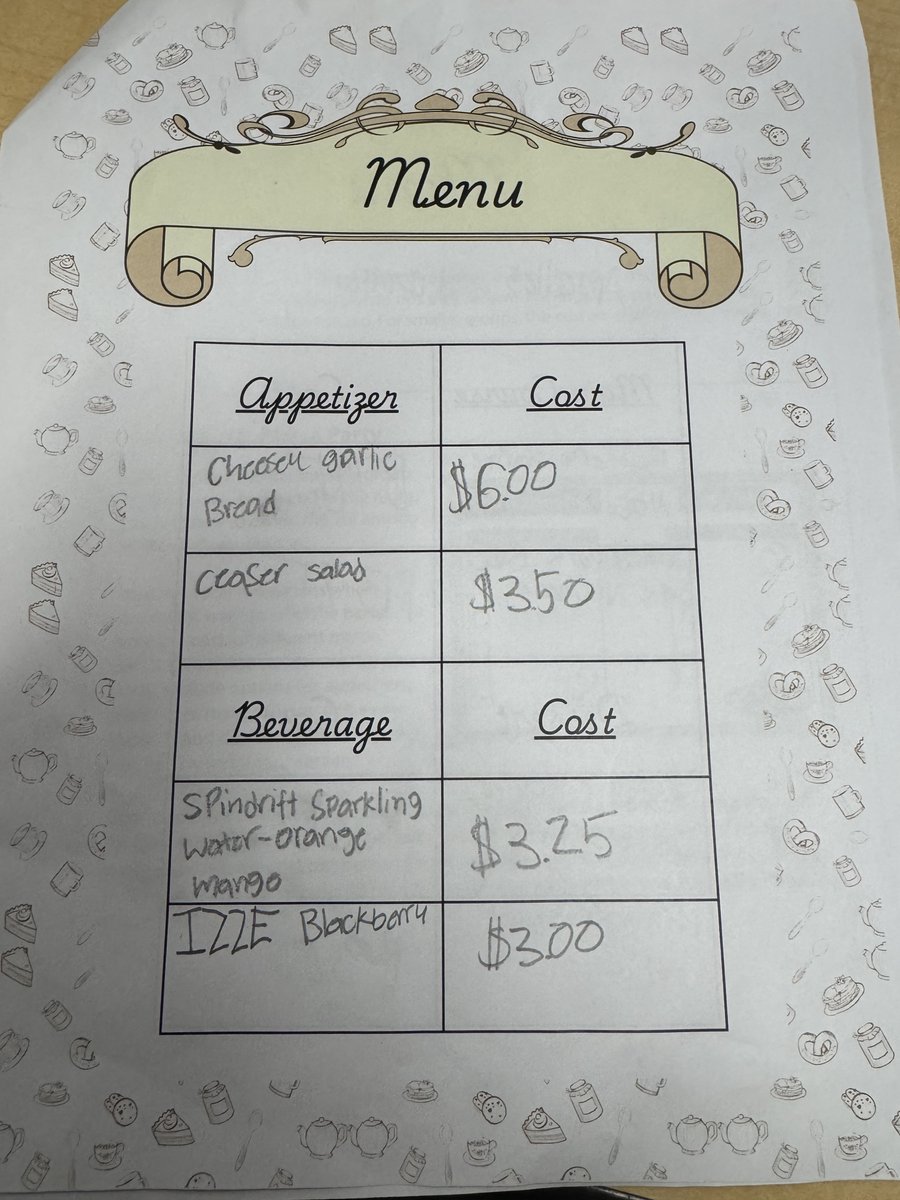 Menu
Appetizer Cost
Cheesey garlic
Bread
$6.00
ceaser salad
$3.50
Beverage Cost
SPindrift Sparkling
water-orange
mango
$3.25
IZZE Blackberry
$3.00